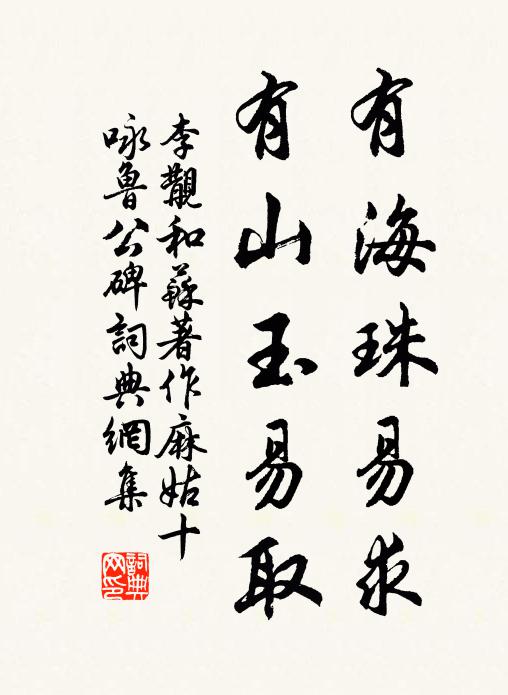 有海珠易求
有山玉易取
李覯和蘇著作麻姑十
咏魯公碑詞典網集
詞典
网印